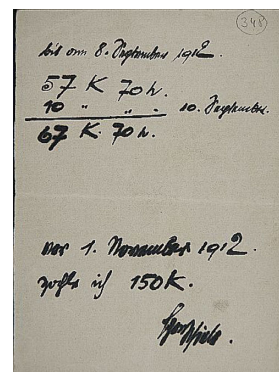 348
bis am 8. September 1912.
57 K 70 h.
10 " " " 10. September.
67 K. 70 h.
vor 1. November 1912.
zahle ich 150 K.